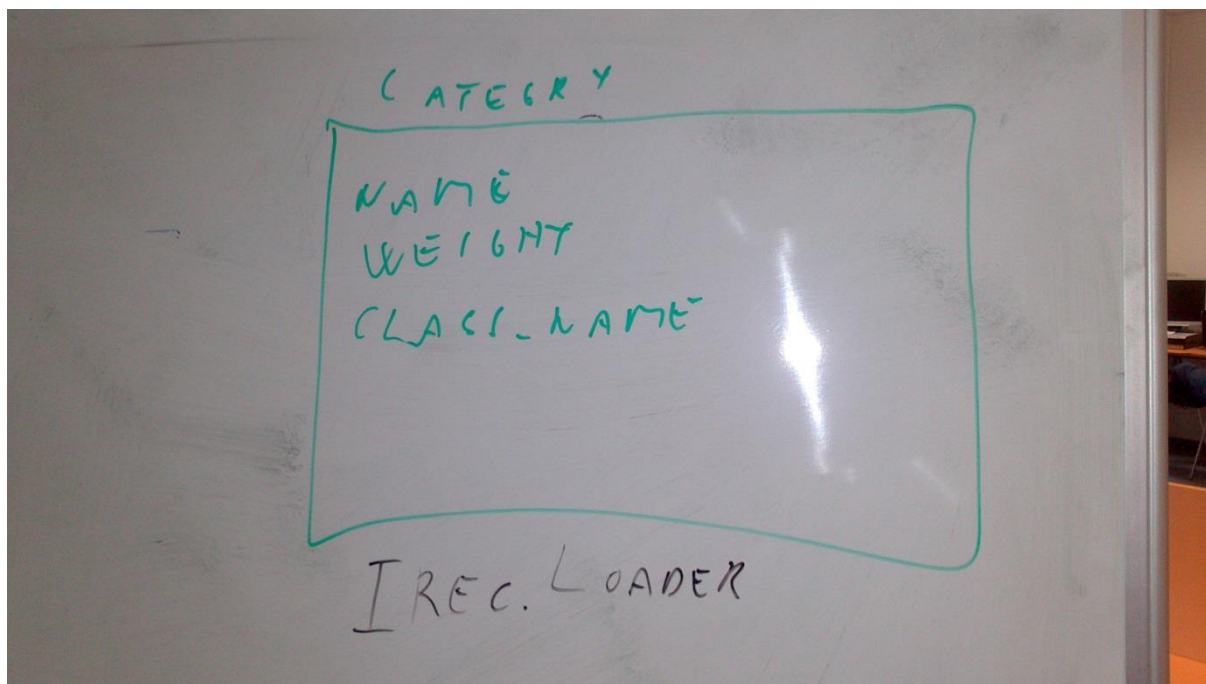 CATEGRY
NAME
WEIGHT
CLASS_NAME
IREC. LOADER